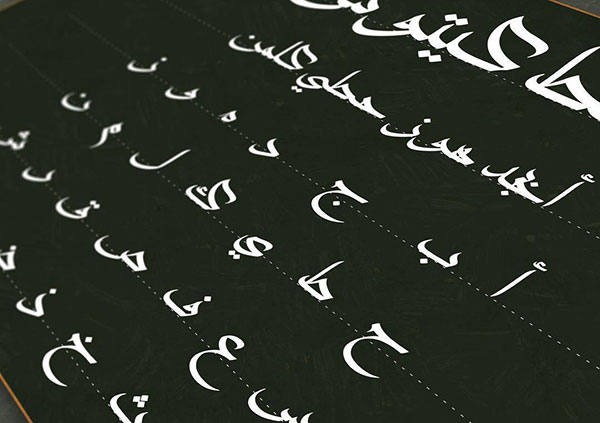 أبجد هوز حطي كلمن
أ ب ج د ه و ز
ح ط ي ك ل م ن
س ع ف ص ق ر ش
ث خ ذ